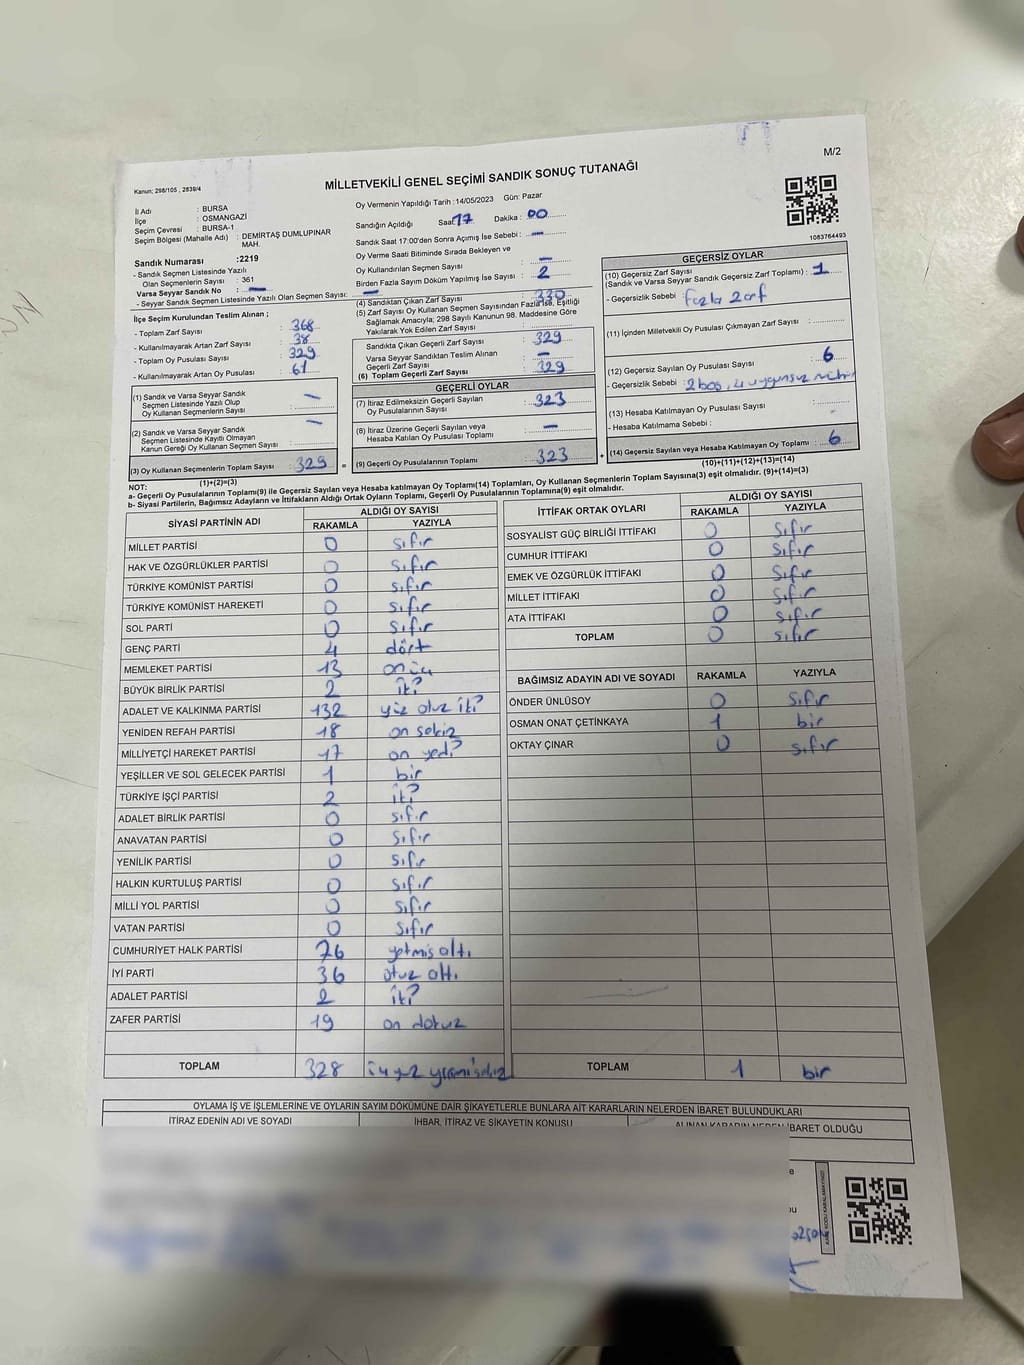 M/2
Kanun: 298/105 , 2839/4
MİLLETVEKİLİ GENEL SEÇİMİ SANDIK SONUÇ TUTANAĞI
İl Adı : BURSA
İlçe : OSMANGAZİ
Seçim Çevresi : BURSA-1
Seçim Bölgesi (Mahalle Adı) : DEMİRTAŞ DUMLUPINAR MAH.
Sandık Numarası :2219
- Sandık Seçmen Listesinde Yazılı
Olan Seçmenlerin Sayısı : 361
Varsa Seyyar Sandık No : —
- Seyyar Sandık Seçmen Listesinde Yazılı Olan Seçmen Sayısı: —
Oy Vermenin Yapıldığı Tarih :14/05/2023 Gün: Pazar
Sandığın Açıldığı Saat 17 Dakika : 00
Sandık Saat 17:00'den Sonra Açımış İse Sebebi : —
Oy Verme Saati Bitiminde Sırada Bekleyen ve
Oy Kullandırılan Seçmen Sayısı : —
Birden Fazla Sayım Döküm Yapılmış İse Sayısı : 2
(4) Sandıktan Çıkan Zarf Sayısı : 330
(5) Zarf Sayısı Oy Kullanan Seçmen Sayısından Fazla İse, Eşitliği
Sağlamak Amacıyla; 298 Sayılı Kanunun 98. Maddesine Göre
Yakılarak Yok Edilen Zarf Sayısı :
1083764493
İlçe Seçim Kurulundan Teslim Alınan ;
- Toplam Zarf Sayısı : 368
- Kullanılmayarak Artan Zarf Sayısı : 38
- Toplam Oy Pusulası Sayısı : 329
- Kullanılmayarak Artan Oy Pusulası : 61
(1) Sandık ve Varsa Seyyar Sandık
Seçmen Listesinde Yazılı Olup
Oy Kullanan Seçmenlerin Sayısı : —
(2) Sandık ve Varsa Seyyar Sandık
Seçmen Listesinde Kayıtlı Olmayan
Kanun Gereği Oy Kullanan Seçmen Sayısı : —
(3) Oy Kullanan Seçmenlerin Toplam Sayısı : 329 =
(1)+(2)=(3)
Sandıkta Çıkan Geçerli Zarf Sayısı : 329
Varsa Seyyar Sandıktan Teslim Alınan
Geçerli Zarf Sayısı : —
(6) Toplam Geçerli Zarf Sayısı : 329
GEÇERLİ OYLAR
(7) İtiraz Edilmeksizin Geçerli Sayılan
Oy Pusulalarının Sayısı : 323
(8) İtiraz Üzerine Geçerli Sayılan veya
Hesaba Katılan Oy Pusulası Toplamı : —
(9) Geçerli Oy Pusulalarının Toplamı : 323 +
GEÇERSİZ OYLAR
(10) Geçersiz Zarf Sayısı
(Sandık ve Varsa Seyyar Sandık Geçersiz Zarf Toplamı) : 1
- Geçersizlik Sebebi : fazla zarf
(11) İçinden Milletvekili Oy Pusulası Çıkmayan Zarf Sayısı :
(12) Geçersiz Sayılan Oy Pusulası Sayısı : 6
- Geçersizlik Sebebi : 2 boş, 4 uygunsuz mühür
(13) Hesaba Katılmayan Oy Pusulası Sayısı :
- Hesaba Katılmama Sebebi :
(14) Geçersiz Sayılan veya Hesaba Katılmayan Oy Toplamı : 6
(10)+(11)+(12)+(13)=(14)
NOT:
a- Geçerli Oy Pusulalarının Toplamı(9) ile Geçersiz Sayılan veya Hesaba katılmayan Oy Toplamı(14) Toplamları, Oy Kullanan Seçmenlerin Toplam Sayısına(3) eşit olmalıdır. (9)+(14)=(3)
b- Siyasi Partilerin, Bağımsız Adayların ve İttifakların Aldığı Ortak Oyların Toplamı, Geçerli Oy Pusulalarının Toplamına(9) eşit olmalıdır.
SİYASİ PARTİNİN ADI ALDIĞI OY SAYISI
RAKAMLA YAZIYLA
MİLLET PARTİSİ 0 sıfır
HAK VE ÖZGÜRLÜKLER PARTİSİ 0 sıfır
TÜRKİYE KOMÜNİST PARTİSİ 0 sıfır
TÜRKİYE KOMÜNİST HAREKETİ 0 sıfır
SOL PARTİ 0 sıfır
GENÇ PARTİ 4 dört
MEMLEKET PARTİSİ 13 onüç
BÜYÜK BİRLİK PARTİSİ 2 iki
ADALET VE KALKINMA PARTİSİ 132 yüz otuz iki
YENİDEN REFAH PARTİSİ 18 on sekiz
MİLLİYETÇİ HAREKET PARTİSİ 17 on yedi
YEŞİLLER VE SOL GELECEK PARTİSİ 1 bir
TÜRKİYE İŞÇİ PARTİSİ 2 iki
ADALET BİRLİK PARTİSİ 0 sıfır
ANAVATAN PARTİSİ 0 sıfır
YENİLİK PARTİSİ 0 sıfır
HALKIN KURTULUŞ PARTİSİ 0 sıfır
MİLLİ YOL PARTİSİ 0 sıfır
VATAN PARTİSİ 0 sıfır
CUMHURİYET HALK PARTİSİ 76 yetmiş altı
İYİ PARTİ 36 otuz altı
ADALET PARTİSİ 2 iki
ZAFER PARTİSİ 19 on dokuz
TOPLAM 328 üçyüz yirmisekiz
İTTİFAK ORTAK OYLARI ALDIĞI OY SAYISI
RAKAMLA YAZIYLA
SOSYALİST GÜÇ BİRLİĞİ İTTİFAKI 0 sıfır
CUMHUR İTTİFAKI 0 sıfır
EMEK VE ÖZGÜRLÜK İTTİFAKI 0 sıfır
MİLLET İTTİFAKI 0 sıfır
ATA İTTİFAKI 0 sıfır
TOPLAM 0 sıfır
BAĞIMSIZ ADAYIN ADI VE SOYADI RAKAMLA YAZIYLA
ÖNDER ÜNLÜSOY 0 sıfır
OSMAN ONAT ÇETİNKAYA 1 bir
OKTAY ÇINAR 0 sıfır
TOPLAM 1 bir
OYLAMA İŞ VE İŞLEMLERİNE VE OYLARIN SAYIM DÖKÜMÜNE DAİR ŞİKAYETLERLE BUNLARA AİT KARARLARIN NELERDEN İBARET BULUNDUKLARI
İTİRAZ EDENİN ADI VE SOYADI İHBAR, İTİRAZ VE ŞİKAYETİN KONUSU ALINAN KARARIN NEDEN İBARET OLDUĞU